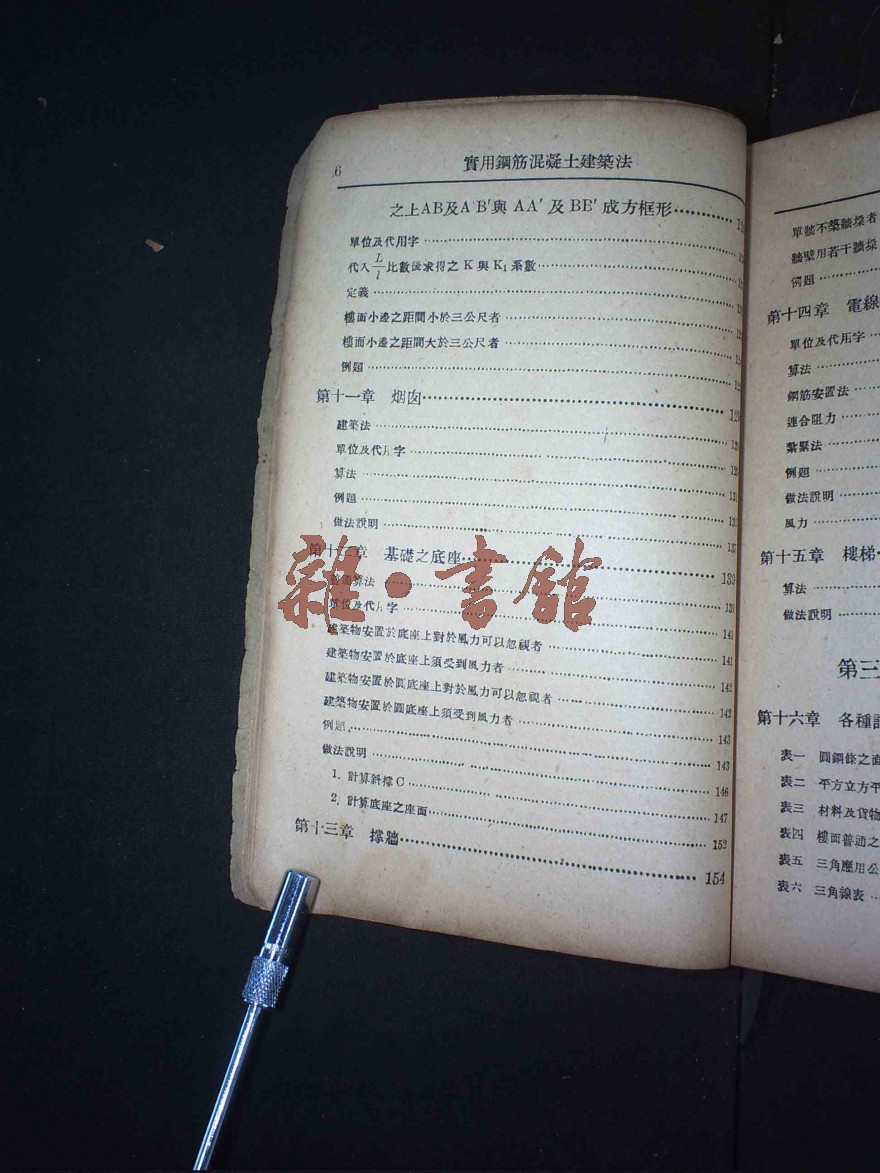 6
實用鋼筋混凝土建築法
之上AB及A'B'與 AA' 及 BB' 成方框形
單位及代用字
代入 L/l 比數後求得之 K 與 K₁ 系數
定義
樓面小邊之距間小於三公尺者
樓面小邊之距間大於三公尺者
例題
第十一章 烟囱
建築法
單位及代用字
算法
例題 131
做法說明 137
第十二章 基礎之底座 139
普通算法 139
單位及代用字 141
建築物安置於底座上對於風力可以忽視者 141
建築物安置於底座上須受到風力者 142
建築物安置於圓底座上對於風力可以忽視者 142
建築物安置於圓底座上須受到風力者 143
例題 143
做法說明 146
1. 計算斜撐C 147
2. 計算底座之座面 152
第十三章 撐牆 154
雜·書館
單牆不築牆垜者
牆壁用若干牆垜
例題
第十四章 電線
單位及代用字
算法
鋼筋安置法
連合阻力
紮緊法
例題
做法說明
風力
第十五章 樓梯
算法
做法說明
第三
第十六章 各種
表一 圓鋼條之面
表二 平方立方平
表三 材料及貨物
表四 樓面普通之
表五 三角應用公
表六 三角線表